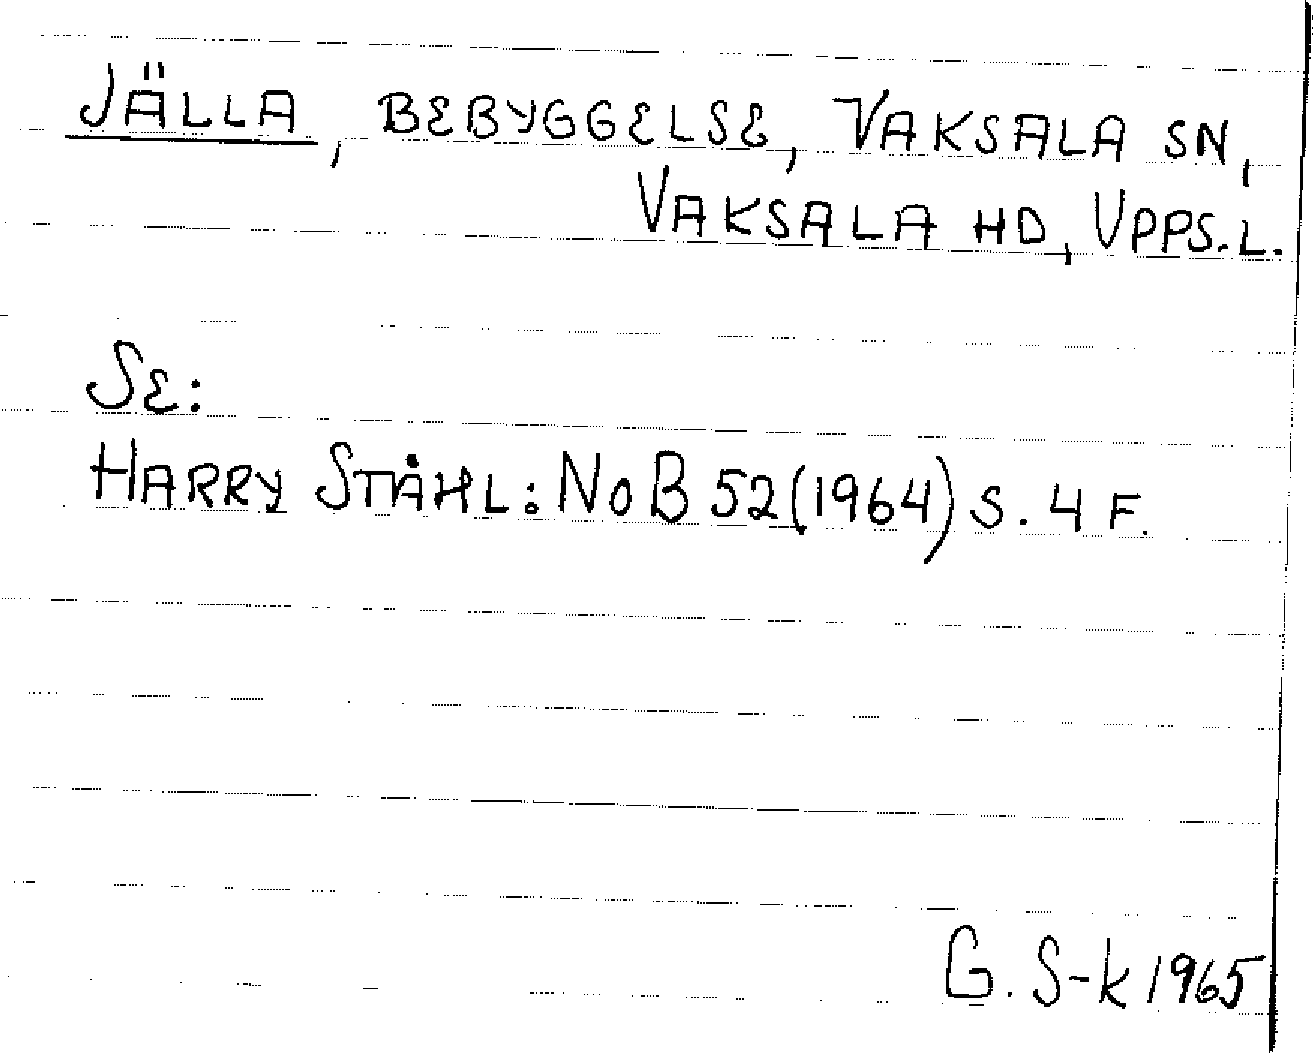 JÄLLA, BEBYGGELSE, VAKSALA SN,
VAKSALA HD, UPPS.L.
SE:
HARRY STÅHL: NoB 52(1964) S. 4 F.
G. S-k 1965